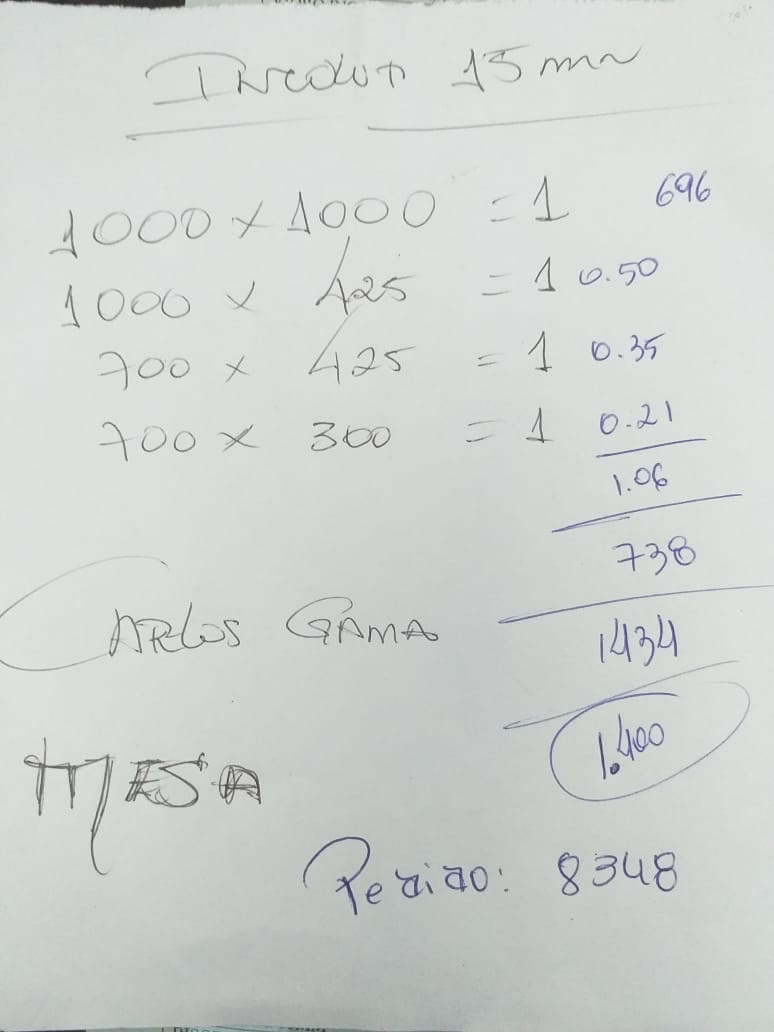 Incolor 15mm
1000 x 1000 = 1 696
1000 x 425 = 1 0.50
700 x 425 = 1 0.35
700 x 300 = 1 0.21
1.06
738
CARLOS GAMA
1434
1.400
MESA
Pedido: 8348